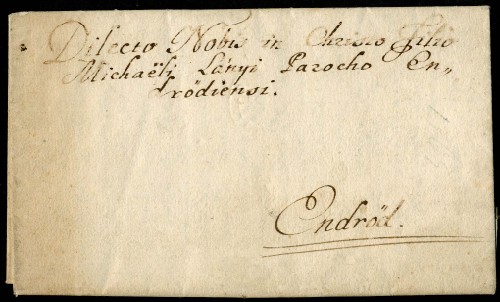 Dilecto Nobis in Christo Filio
Michaëli Lányi Parocho En„
drödiensi.
Endröd.